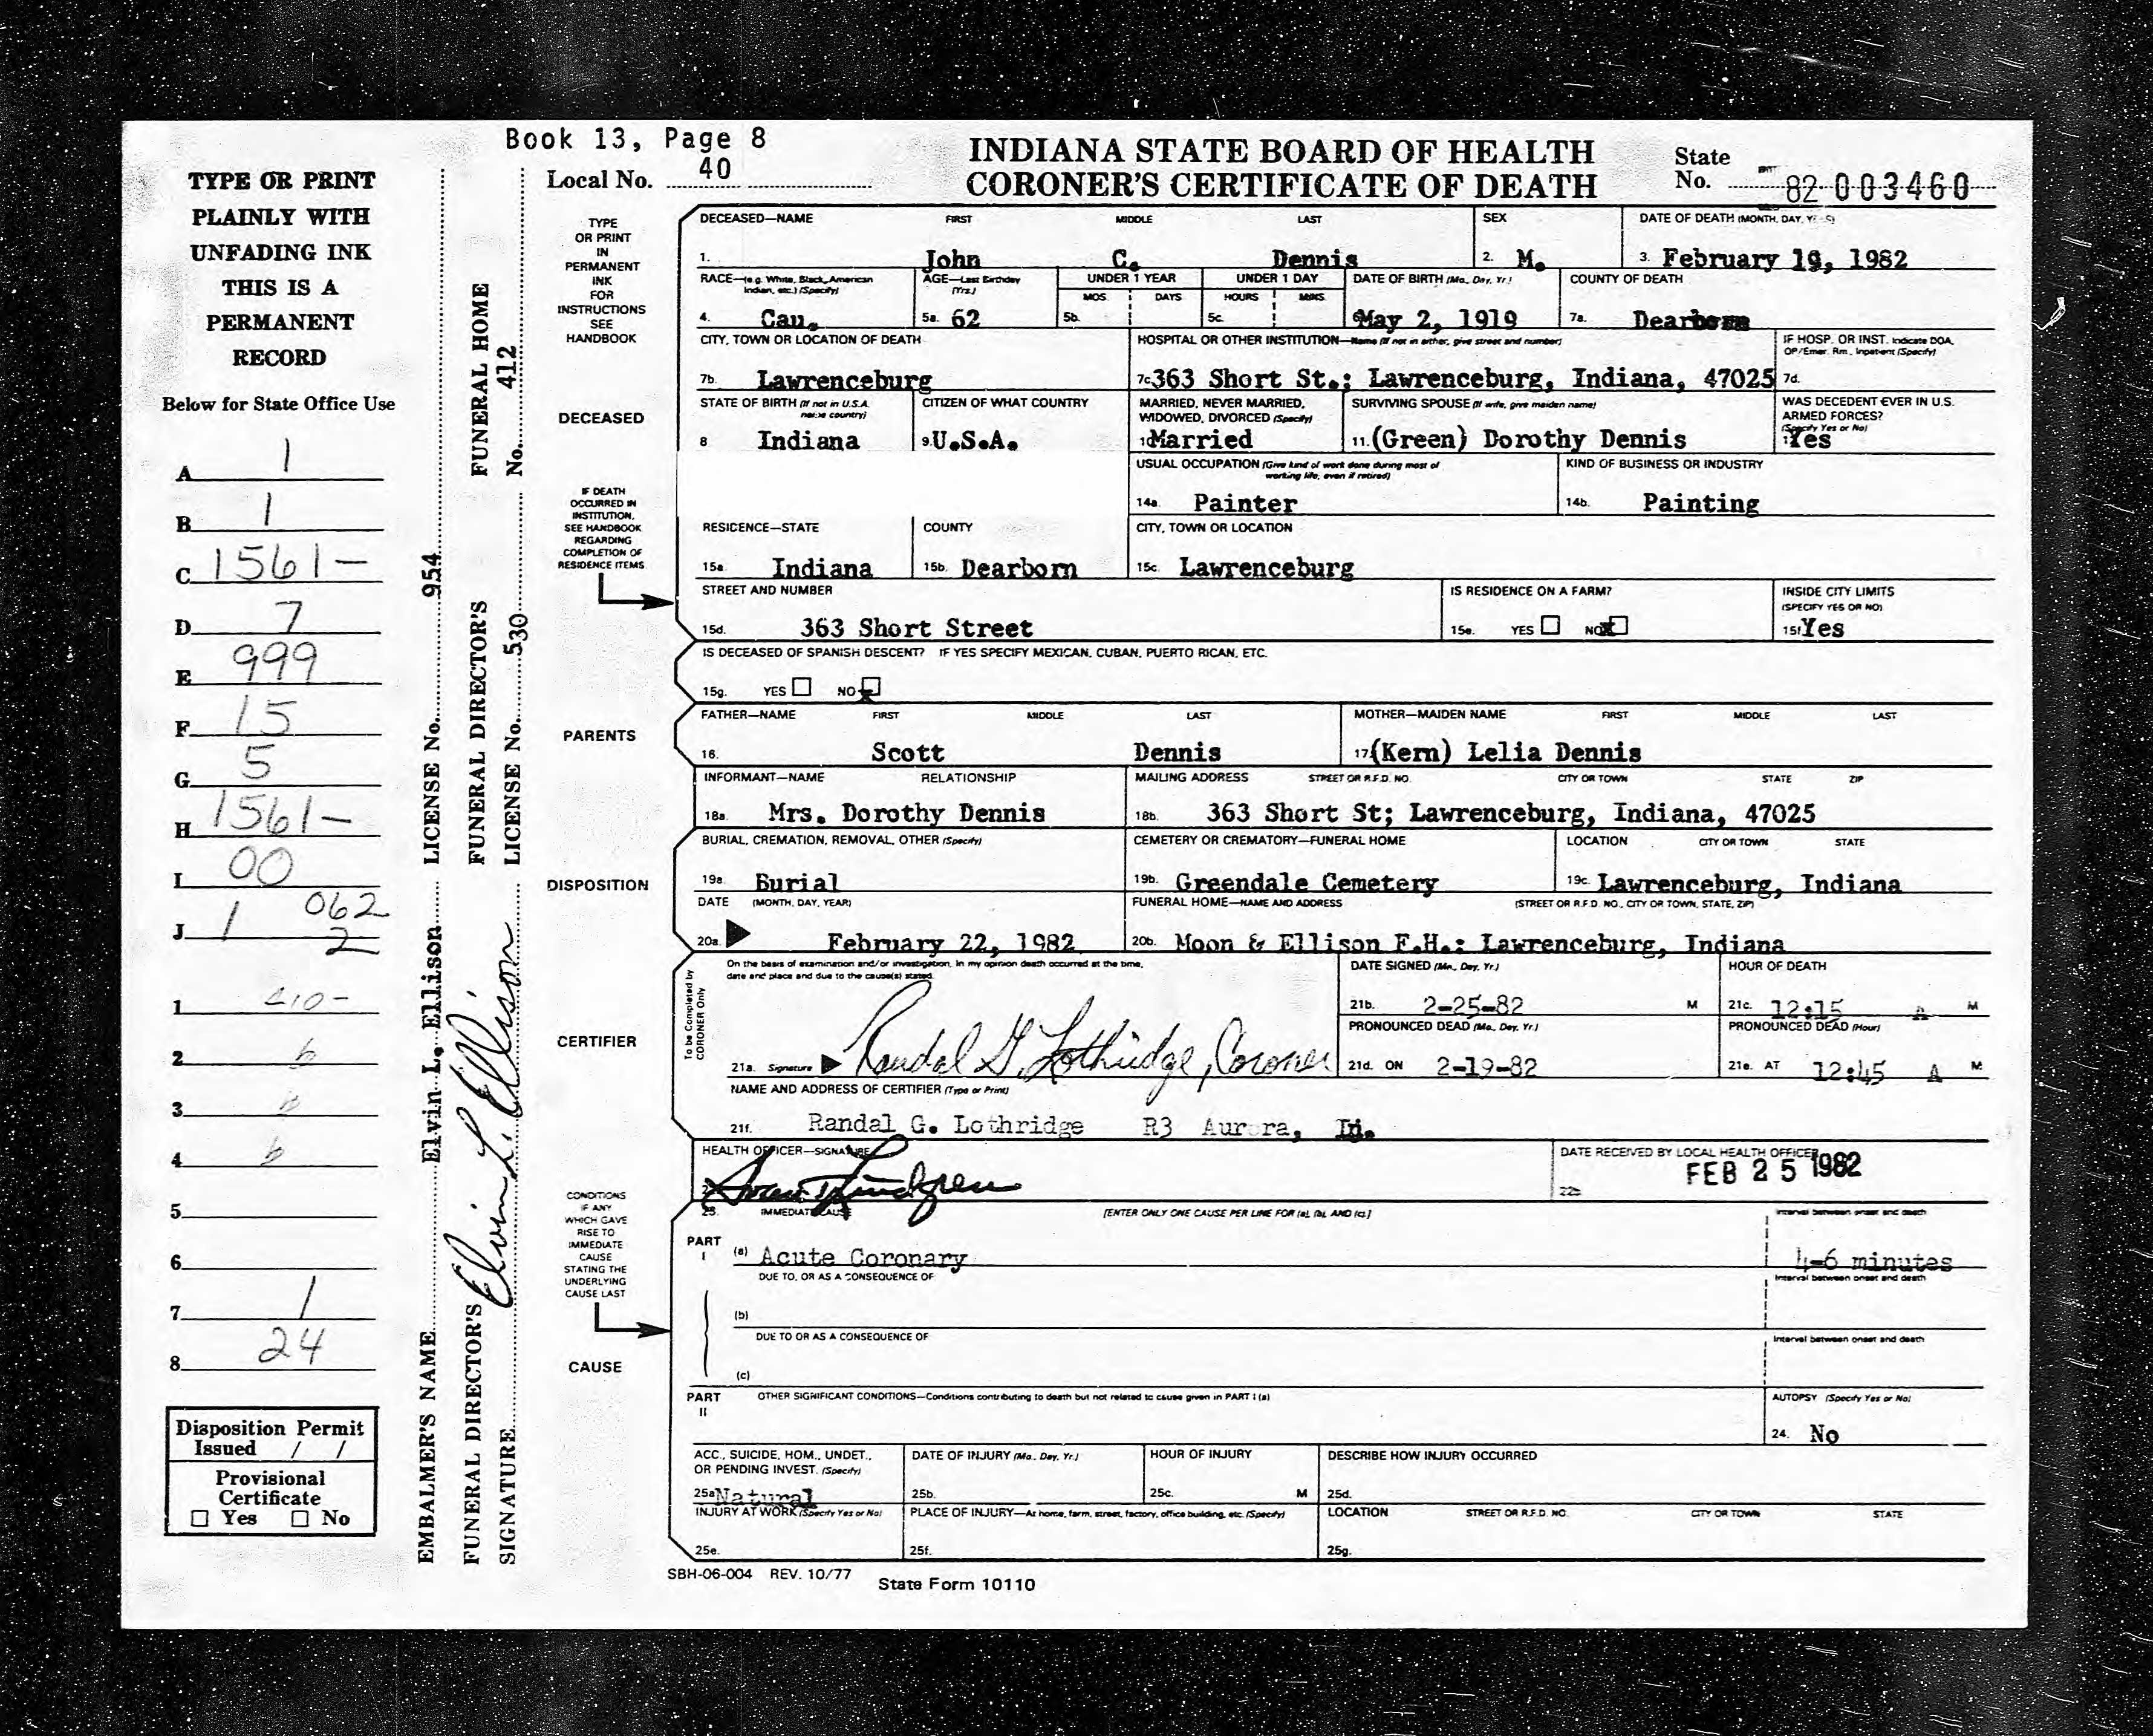 Book 13, Page 8
Local No. 40
INDIANA STATE BOARD OF HEALTH
CORONER'S CERTIFICATE OF DEATH
State
No. 82 003460
TYPE OR PRINT
PLAINLY WITH
UNFADING INK
THIS IS A
PERMANENT
RECORD
Below for State Office Use
A 1
B 1
C 1561-
D 7
E 999
F 15
G 5
H 1561-
I 00
J 1 062
2
1 410-
2 b
3 b
4 b
5
6
7 1
8 24
Disposition Permit
Issued / /
Provisional
Certificate
Yes No
EMBALMER'S NAME Elvin L. Ellison LICENSE No. 954
FUNERAL DIRECTOR'S FUNERAL DIRECTOR'S FUNERAL HOME
SIGNATURE Elvin L. Ellison LICENSE No. 530 No. 412
TYPE
OR PRINT
IN
PERMANENT
INK
FOR
INSTRUCTIONS
SEE
HANDBOOK
DECEASED
IF DEATH
OCCURRED IN
INSTITUTION,
SEE HANDBOOK
REGARDING
COMPLETION OF
RESIDENCE ITEMS
PARENTS
DISPOSITION
CERTIFIER
CONDITIONS
IF ANY
WHICH GAVE
RISE TO
IMMEDIATE
CAUSE
STATING THE
UNDERLYING
CAUSE LAST
CAUSE
DECEASED—NAME FIRST MIDDLE LAST SEX DATE OF DEATH (MONTH, DAY,
1. John C. Dennis 2. M. 3. February 19, 1982
RACE—(e.g. White, Black, American Indian, etc.) (Specify) AGE—Last Birthday (Yrs.) UNDER 1 YEAR UNDER 1 DAY DATE OF BIRTH (Mo., Day, Yr.) COUNTY OF DEATH
MOS. DAYS HOURS MINS.
4. Cau. 5a. 62 5b. 5c. May 2, 1919 7a. Dearborn
CITY, TOWN OR LOCATION OF DEATH HOSPITAL OR OTHER INSTITUTION—Name (If not in either, give street and number) IF HOSP. OR INST. Indicate DOA,
OP/Emer. Rm., Inpatient (Specify)
7b. Lawrenceburg 7c. 363 Short St.; Lawrenceburg, Indiana, 47025 7d.
STATE OF BIRTH (If not in U.S.A. name country) CITIZEN OF WHAT COUNTRY MARRIED, NEVER MARRIED, WIDOWED, DIVORCED (Specify) SURVIVING SPOUSE (If wife, give maiden name) WAS DECEDENT EVER IN U.S. ARMED FORCES?
(Specify Yes or No)
8 Indiana 9. U.S.A. 10 Married 11. (Green) Dorothy Dennis Yes
USUAL OCCUPATION (Give kind of work done during most of working life, even if retired) KIND OF BUSINESS OR INDUSTRY
14a. Painter 14b. Painting
RESIDENCE—STATE COUNTY CITY, TOWN OR LOCATION
15a. Indiana 15b. Dearborn 15c. Lawrenceburg
STREET AND NUMBER IS RESIDENCE ON A FARM? INSIDE CITY LIMITS
(SPECIFY YES OR NO)
15d. 363 Short Street 15e. YES NO X 15f Yes
IS DECEASED OF SPANISH DESCENT? IF YES SPECIFY MEXICAN, CUBAN, PUERTO RICAN, ETC.
15g. YES NO X
FATHER—NAME FIRST MIDDLE LAST MOTHER—MAIDEN NAME FIRST MIDDLE LAST
16. Scott Dennis 17. (Kern) Lelia Dennis
INFORMANT—NAME RELATIONSHIP MAILING ADDRESS STREET OR R.F.D. NO. CITY OR TOWN STATE ZIP
18a. Mrs. Dorothy Dennis 18b. 363 Short St; Lawrenceburg, Indiana, 47025
BURIAL, CREMATION, REMOVAL, OTHER (Specify) CEMETERY OR CREMATORY—FUNERAL HOME LOCATION CITY OR TOWN STATE
19a. Burial 19b. Greendale Cemetery 19c. Lawrenceburg, Indiana
DATE (MONTH, DAY, YEAR) FUNERAL HOME—NAME AND ADDRESS (STREET OR R.F.D. NO., CITY OR TOWN, STATE, ZIP)
20a. February 22, 1982 20b. Moon & Ellison F.H.; Lawrenceburg, Indiana
To be Completed by
CORONER Only
On the basis of examination and/or investigation, in my opinion death occurred at the time,
date and place and due to the cause(s) stated.
DATE SIGNED (Mo., Day, Yr.) HOUR OF DEATH
21b. 2-25-82 M 21c. 12:15 A M
PRONOUNCED DEAD (Mo., Day, Yr.) PRONOUNCED DEAD (Hour)
21a. Signature Randal G. Lothridge, Coroner 21d. ON 2-19-82 21e. AT 12:45 A M
NAME AND ADDRESS OF CERTIFIER (Type or Print)
21f. Randal G. Lothridge R3 Aurora, In.
HEALTH OFFICER—SIGNATURE DATE RECEIVED BY LOCAL HEALTH OFFICER
FEB 25 1982
22b
23. IMMEDIATE CAUSE [ENTER ONLY ONE CAUSE PER LINE FOR (a), (b), AND (c).] Interval between onset and death
PART I (a) Acute Coronary 4-6 minutes
DUE TO, OR AS A CONSEQUENCE OF: Interval between onset and death
(b)
DUE TO OR AS A CONSEQUENCE OF: Interval between onset and death
(c)
PART II OTHER SIGNIFICANT CONDITIONS—Conditions contributing to death but not related to cause given in PART I (a) AUTOPSY (Specify Yes or No)
24. No
ACC., SUICIDE, HOM., UNDET., OR PENDING INVEST. (Specify) DATE OF INJURY (Mo., Day, Yr.) HOUR OF INJURY DESCRIBE HOW INJURY OCCURRED
25a Natural 25b. 25c. M 25d.
INJURY AT WORK (Specify Yes or No) PLACE OF INJURY—At home, farm, street, factory, office building, etc. (Specify) LOCATION STREET OR R.F.D. NO. CITY OR TOWN STATE
25e. 25f. 25g.
SBH-06-004 REV. 10/77 State Form 10110